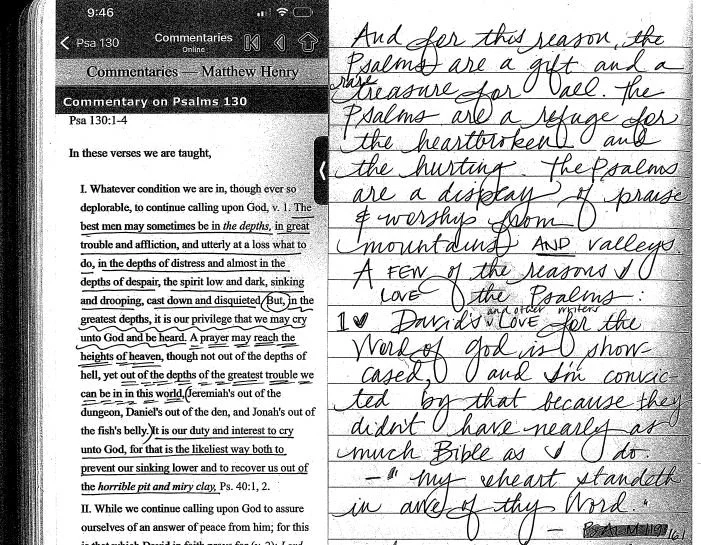 9:46
Psa 130
Commentaries
Online
Commentaries — Matthew Henry
Commentary on Psalms 130
Psa 130:1-4
In these verses we are taught,
I. Whatever condition we are in, though ever so
deplorable, to continue calling upon God, v. 1. The
best men may sometimes be in the depths, in great
trouble and affliction, and utterly at a loss what to
do, in the depths of distress and almost in the
depths of despair, the spirit low and dark, sinking
and drooping, cast down and disquieted. But, in the
greatest depths, it is our privilege that we may cry
unto God and be heard. A prayer may reach the
heights of heaven, though not out of the depths of
hell, yet out of the depths of the greatest trouble we
can be in in this world, Jeremiah's out of the
dungeon, Daniel's out of the den, and Jonah's out of
the fish's belly. It is our duty and interest to cry
unto God, for that is the likeliest way both to
prevent our sinking lower and to recover us out of
the horrible pit and miry clay, Ps. 40:1, 2.
II. While we continue calling upon God to assure
ourselves of an answer of peace from him; for this
is that which David in faith prays for (v. 2): Lord,
And for this reason, the
Psalms are a gift and a
rare
treasure for all. The
Psalms are a refuge for
the heartbroken and
the hurting. The Psalms
are a display of praise
& worship from
mountains AND valleys.
A FEW of the reasons I
LOVE the Psalms:
and other writers
1 ♥ David's LOVE for the
Word of God is show-
cased, and I'm convic-
ted by that because they
didn't have nearly as
much Bible as I do.
- "my heart standeth
in awe of thy Word."
- PSALM 119:161